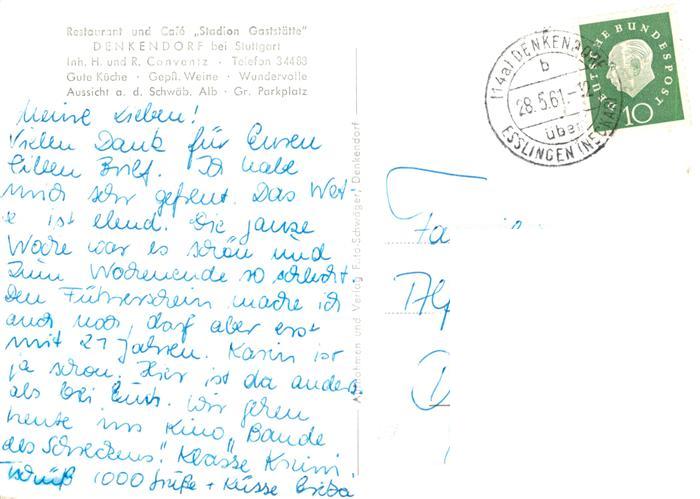 Restaurant und Café „Stadion Gaststätte"
DENKENDORF bei Stuttgart
Inh. H. und R. Conventz · Telefon 34483
Gute Küche · Gepfl. Weine · Wundervolle
Aussicht a. d. Schwäb. Alb · Gr. Parkplatz
Meine Lieben!
Vielen Dank für Euren
lieben Brief. Ich habe
mich sehr gefreut. Das Wet-
ter ist elend. Die ganze
Woche war es schön und
zum Wochenende so schlecht.
Den Führerschein mache ich
auch noch, darf aber erst
mit 21 Jahren. Karin ist
ja schon. Hier ist da anders
als bei Euch. Wir gehen
heute ins Kino „Bande
des Schreckens". Klasse Krimi.
Tschüß 1000 Grüße + Küsse
Aufnahmen und Verlag Foto-Schwäger, Denkendorf
(14a) DENKENDORF
b
28.5.61.-12
über
ESSLINGEN (NECKAR)
DEUTSCHE BUNDESPOST
10
Fa
Alp
D